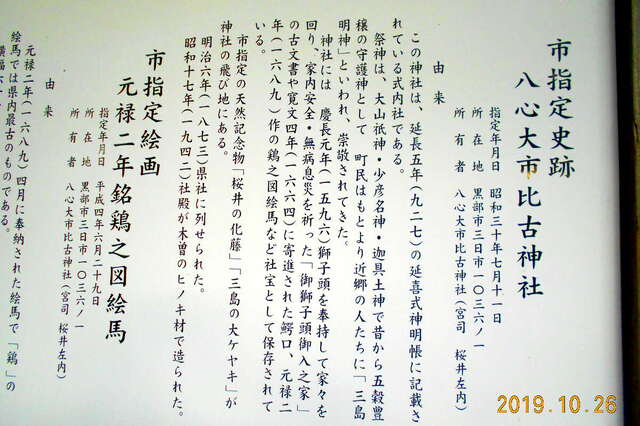 市指定史跡
八心大市比古神社
指定年月日　昭和三十年七月十一日
所在地　黒部市三日市一〇三六ノ一
所有者　八心大市比古神社(宮司　桜井左内)
由来
この神社は、延長五年(九二七)の延喜式神明帳に記載さ
れている式内社である。
祭神は、大山祇神・少彦名神・迦具土神で昔から五穀豊
穣の守護神として　町民はもとより近郷の人たちに「三島
明神」といわれ、崇敬されてきた。
神社には　慶長元年(一五九六)獅子頭を奉持して家々を
回り、家内安全・無病息災を祈った「御獅子頭御入之家」
の古文書や寛文四年(一六六四)に寄進された鰐口、元禄二
年(一六八九)作の鶏之図絵馬など社宝として保存されて
いる。
市指定の天然記念物「桜井の化藤」「三島の大ケヤキ」が
神社の飛び地にある。
明治六年(一八七三)県社に列せられた。
昭和十七年(一九四二)社殿が木曽のヒノキ材で造られた。
市指定絵画
元禄二年銘鶏之図絵馬
指定年月日　平成四年六月二十九日
所在地　黒部市三日市一〇三六ノ一
所有者　八心大市比古神社(宮司　桜井左内)
由来
元禄二年(一六八九)四月に奉納された絵馬で「鶏」の
絵馬では県内最古のものである。
2019.10.26